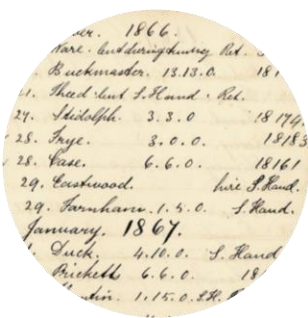 ber. 1866.
Ware. lent during Ret.
Buckmaster. 13.13.0. 181
21. lent S. Hand. Ret.
27. Stidolph. 3.3.0 18179
28. Frye. 3.0.0. 18183
28. Case. 6.6.0. 18161
29. Eastwood. hire S. Hand.
29. Farnham. 1.5.0. S. Hand.
January. 1867.
Duck. 4.10.0. S. Hand
Prickett 6.6.0. 18
tin. 1.15.0. S.H.